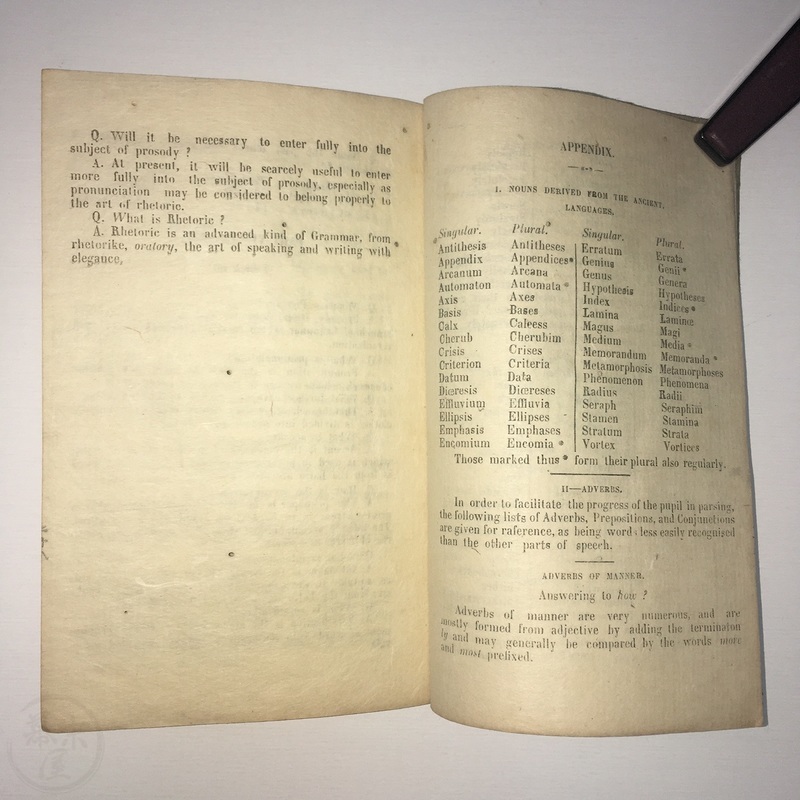 Q. Will it be necessary to enter fully into the
subject of prosody ?
A. At present, it will be scarcely useful to enter
more fully into the subject of prosody, especially as
pronunciation may be considered to belong properly to
the art of rhetoric.
Q. What is Rhetoric ?
A. Rhetoric is an advanced kind of Grammar, from
rhetorike, oratory, the art of speaking and writing with
elegance,
APPENDIX.
I. NOUNS DERIVED FROM THE ANCIENT
LANGUAGES.
Singular. Plural. Singular. Plural.
Antithesis Antitheses Erratum Errata
Appendix Appendices* Genius Genii *
Arcanum Arcana Genus Genera
Automaton Automata * Hypothesis Hypotheses
Axis Axes Index Indices *
Basis Bases Lamina Laminœ
Calx Calcess Magus Magi
Cherub Cherubim Medium Media *
Crisis Crises Memorandum Memoranda *
Criterion Criteria Metamorphosis Metamorphoses
Datum Data Phenomenon Phenomena
Diœresis Diœreses Radius Radii
Effluvium Effluvia Seraph Seraphim
Ellipsis Ellipses Stamen Stamina
Emphasis Emphases Stratum Strata
Encomium Encomia * Vortex Vortices
Those marked thus * form their plural also regularly.
II—ADVERBS.
In order to facilitate the progress of the pupil in parsing,
the following lists of Adverbs, Prepositions, and Conjunctions
are given for raference, as being words less easily recognised
than the other parts of speech.
ADVERBS OF MANNER.
Answering to how ?
Adverbs of manner are very numerous, and are
mostly formed from adjective by adding the terminaton
ly and may generally be compared by the words more
and most prefixed.